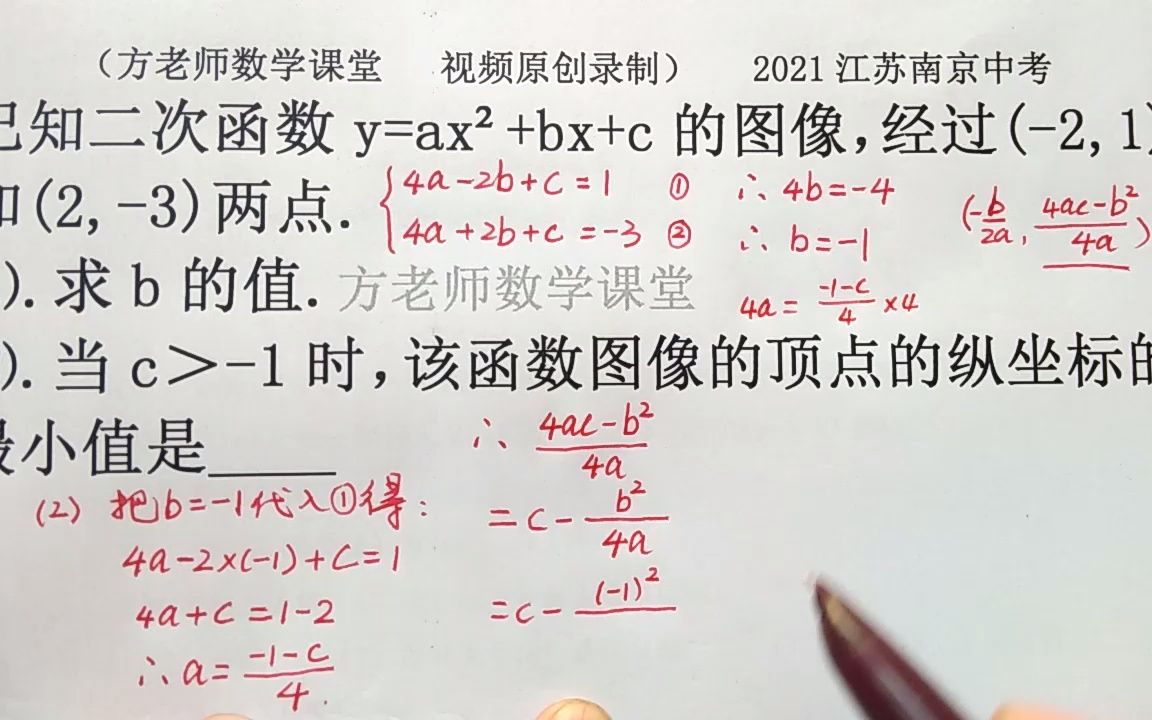 （方老师数学课堂 视频原创录制） 2021江苏南京中考
已知二次函数 y=ax²+bx+c 的图像,经过(-2,1)
和(2,-3)两点.
{4a-2b+c=1 ①
4a+2b+c=-3 ②
∴ 4b=-4
∴ b=-1
(-b/2a, 4ac-b²/4a)
).求 b 的值.
方老师数学课堂
4a= -1-c/4 ×4
).当 c＞-1 时,该函数图像的顶点的纵坐标的
最小值是____
(2) 把b=-1代入①得:
4a-2×(-1)+C=1
4a+C=1-2
∴a= -1-C/4.
∴ 4ac-b²/4a
=c- b²/4a
=c- (-1)²